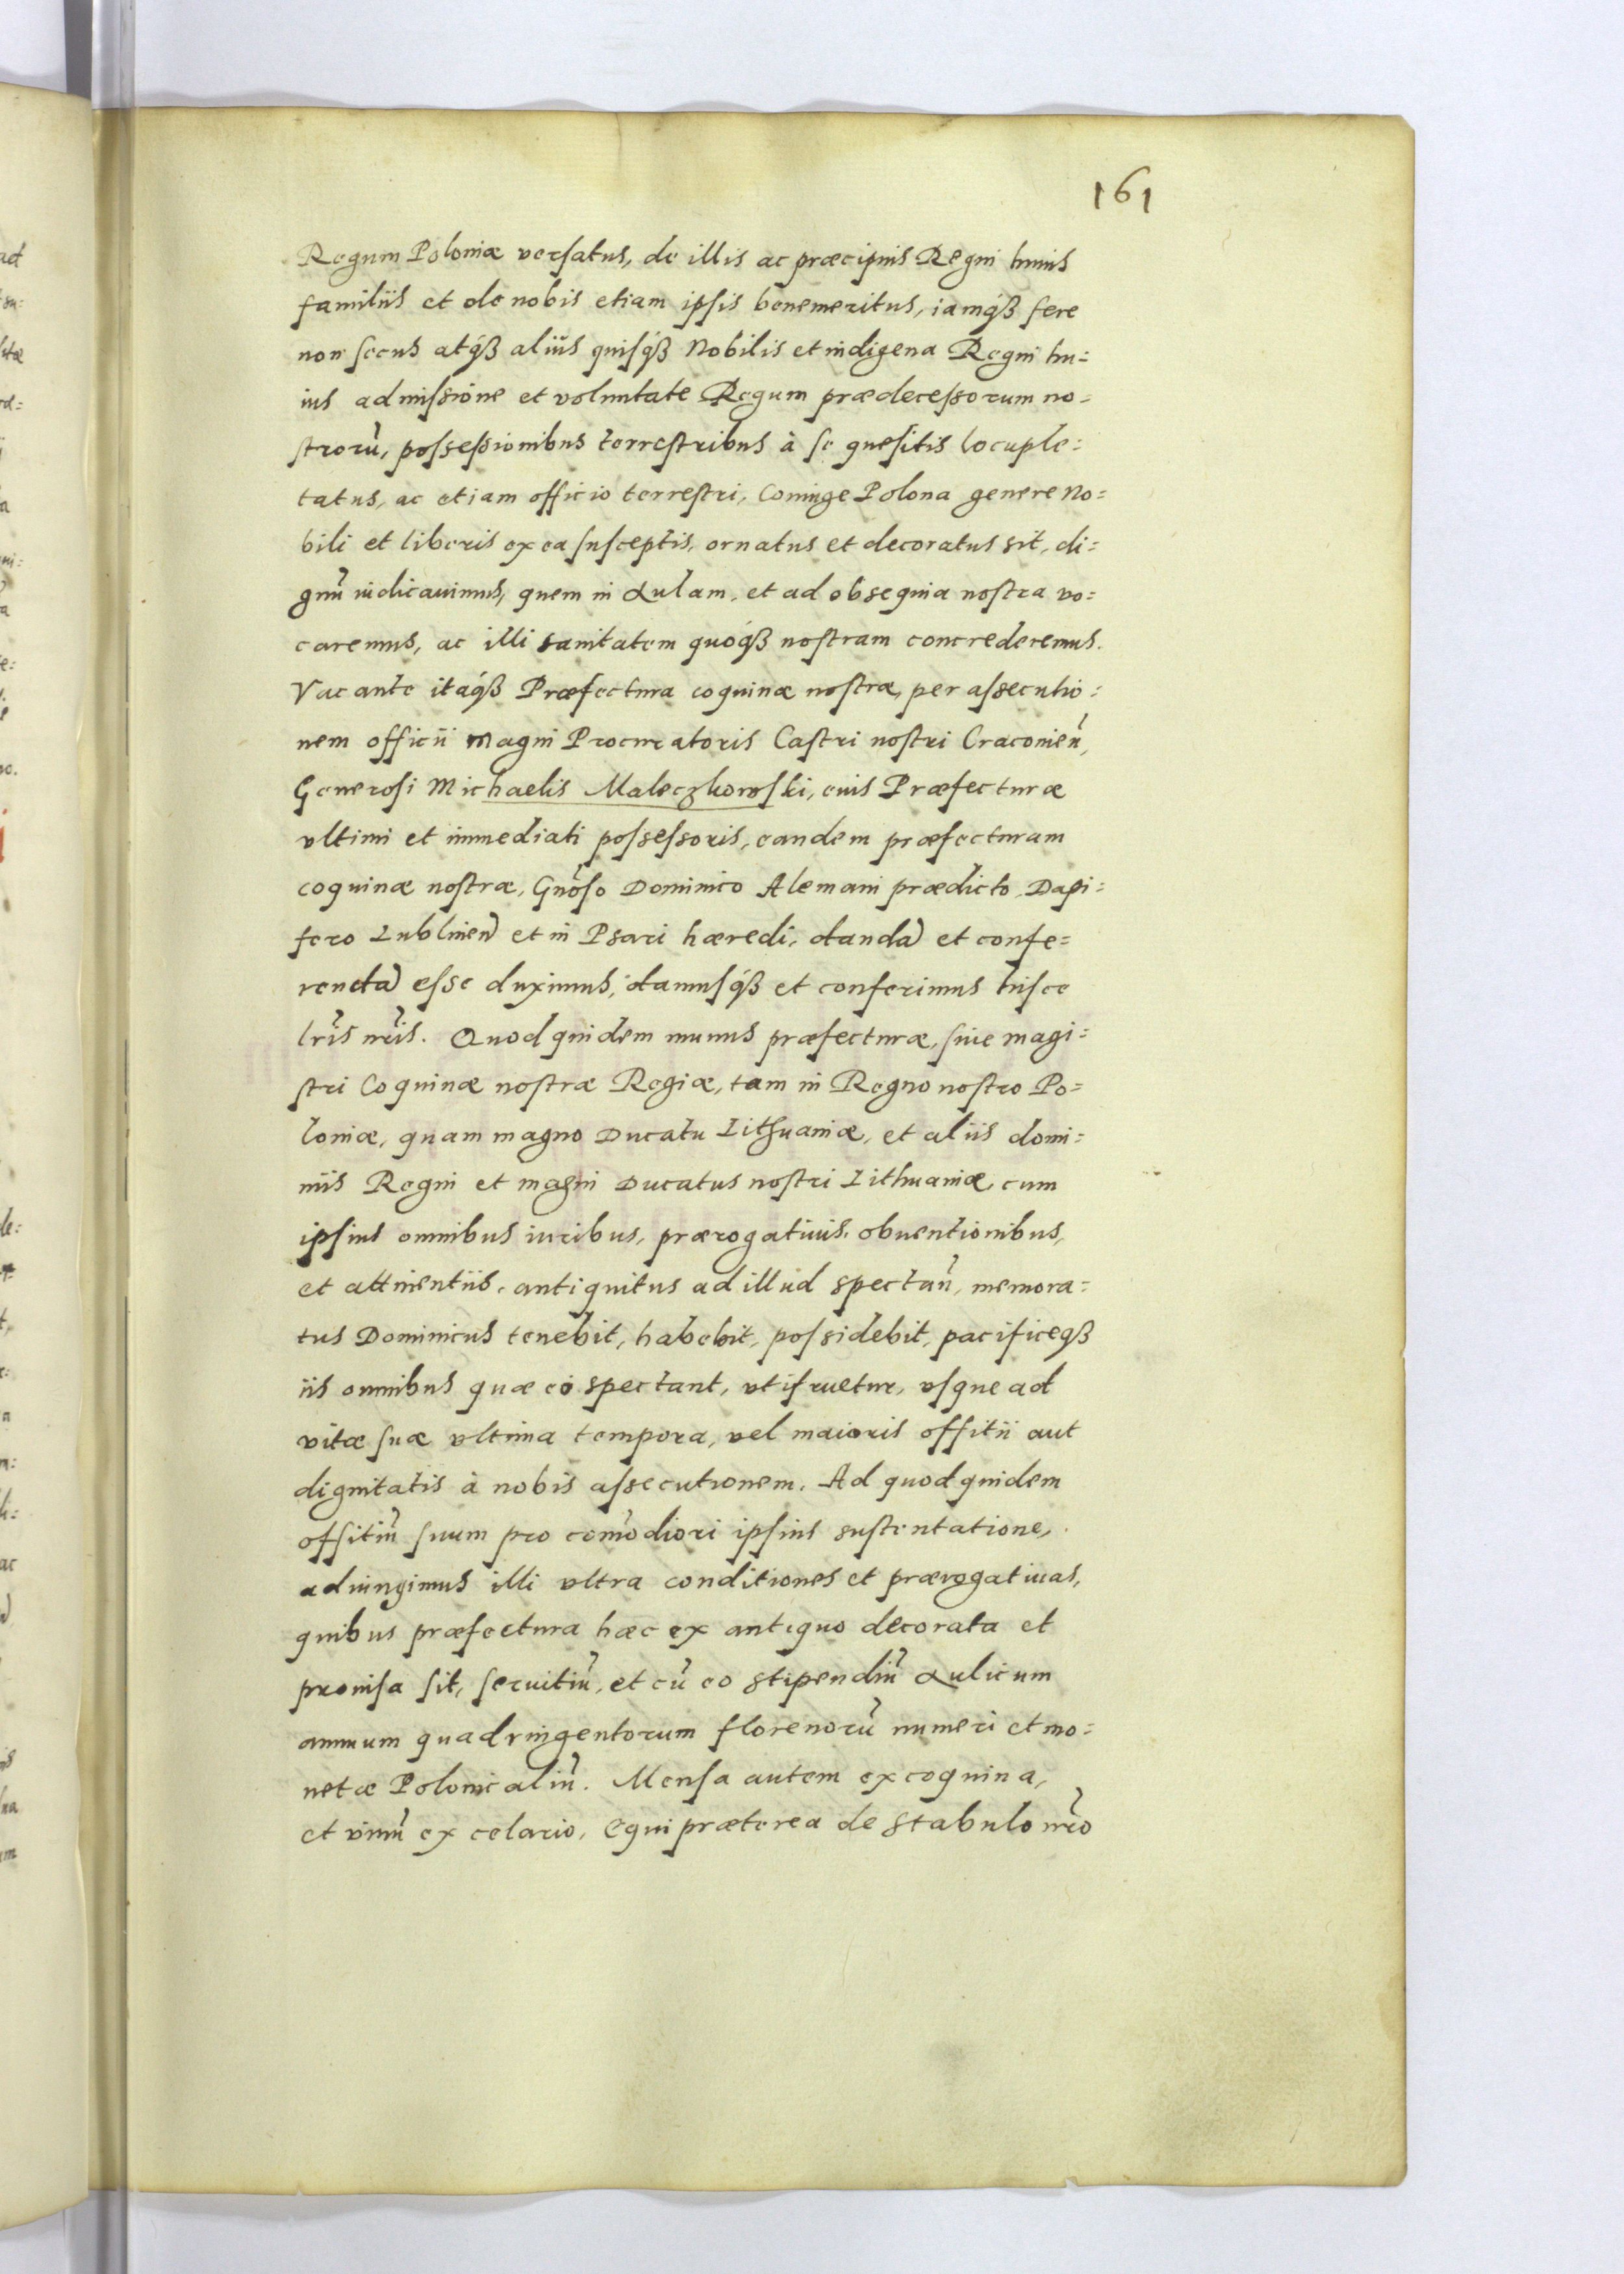 161
Regum Poloniæ versatus, de illis ac præcipuis Regni huius
familiis et de nobis etiam ipsis benemeritus, iamqß fere
non secus atqß alius quisqß Nobilis et indigena Regni hu=
ius admissione et voluntate Regum prædecessorum no=
stroru̅, possessionibus terrestribus à se quesitis locuple=
tatus, ac etiam officio terrestri, Coniuge Polona genere No=
bili et liberis ex ea susceptis, ornatus et decoratus sit, di=
gnu̅ iudicauimus, quem in Aulam, et ad obsequia nostra vo=
caremus, ac illi sanitatem quoqß nostram concrederemus.
Vacante itaqß Præfectura coquinæ nostræ, per assecutio=
nem officii Magni Procuratoris Castri nostri Cracouien̅,
Generosi Michaelis Maleczkowski, euis Præfecturæ
vltimi et immediati possessoris, eandem præfecturam
coquinæ nostræ, Gn̅oso Dominico Alemani prædicto Dapi=
fero Lublinen̅ et in Psari hæredi, danda̅ et confe=
renda̅ esse duximus, damusqß et conferimus hisce
lr̅is nr̅is. Quod quidem munus præfecturæ, siue magi=
stri Coquinæ nostræ Regiæ, tam in Regno nostro Po=
loniæ, quam magno Ducatu Lithuaniæ, et aliis domi=
niis Regni et magni Ducatus nostri Lithuaniæ, cum
ipsius omnibus iuribus, prærogatiuis, obuentionibus,
et attinentiis, antiquitus ad illud spectan̅, memora=
tus Dominicus tenebit, habebit, possidebit, pacificeqß
iis omnibus quæ eò spectant, vtifruetur, vsque ad
vitæ suæ vltima tempora, vel maioris offitii aut
dignitatis à nobis assecutionem. Ad quod quidem
offitiu̅ suum pro com̅odiori ipsius sustentatione,
adiungimus illi vltra conditiones et prærogatiuas,
quibus præfectura hæc ex antiquo decorata et
prouisa sit, seruitiu̅, et cu̅ eo stipendiu̅ Aulicum
annuum quadringentorum florenoru̅ numeri et mo=
netæ Polonicaliu̅. Mensa autem ex coquina,
et vinu̅ ex celario, equi præterea de stabulo nr̅o